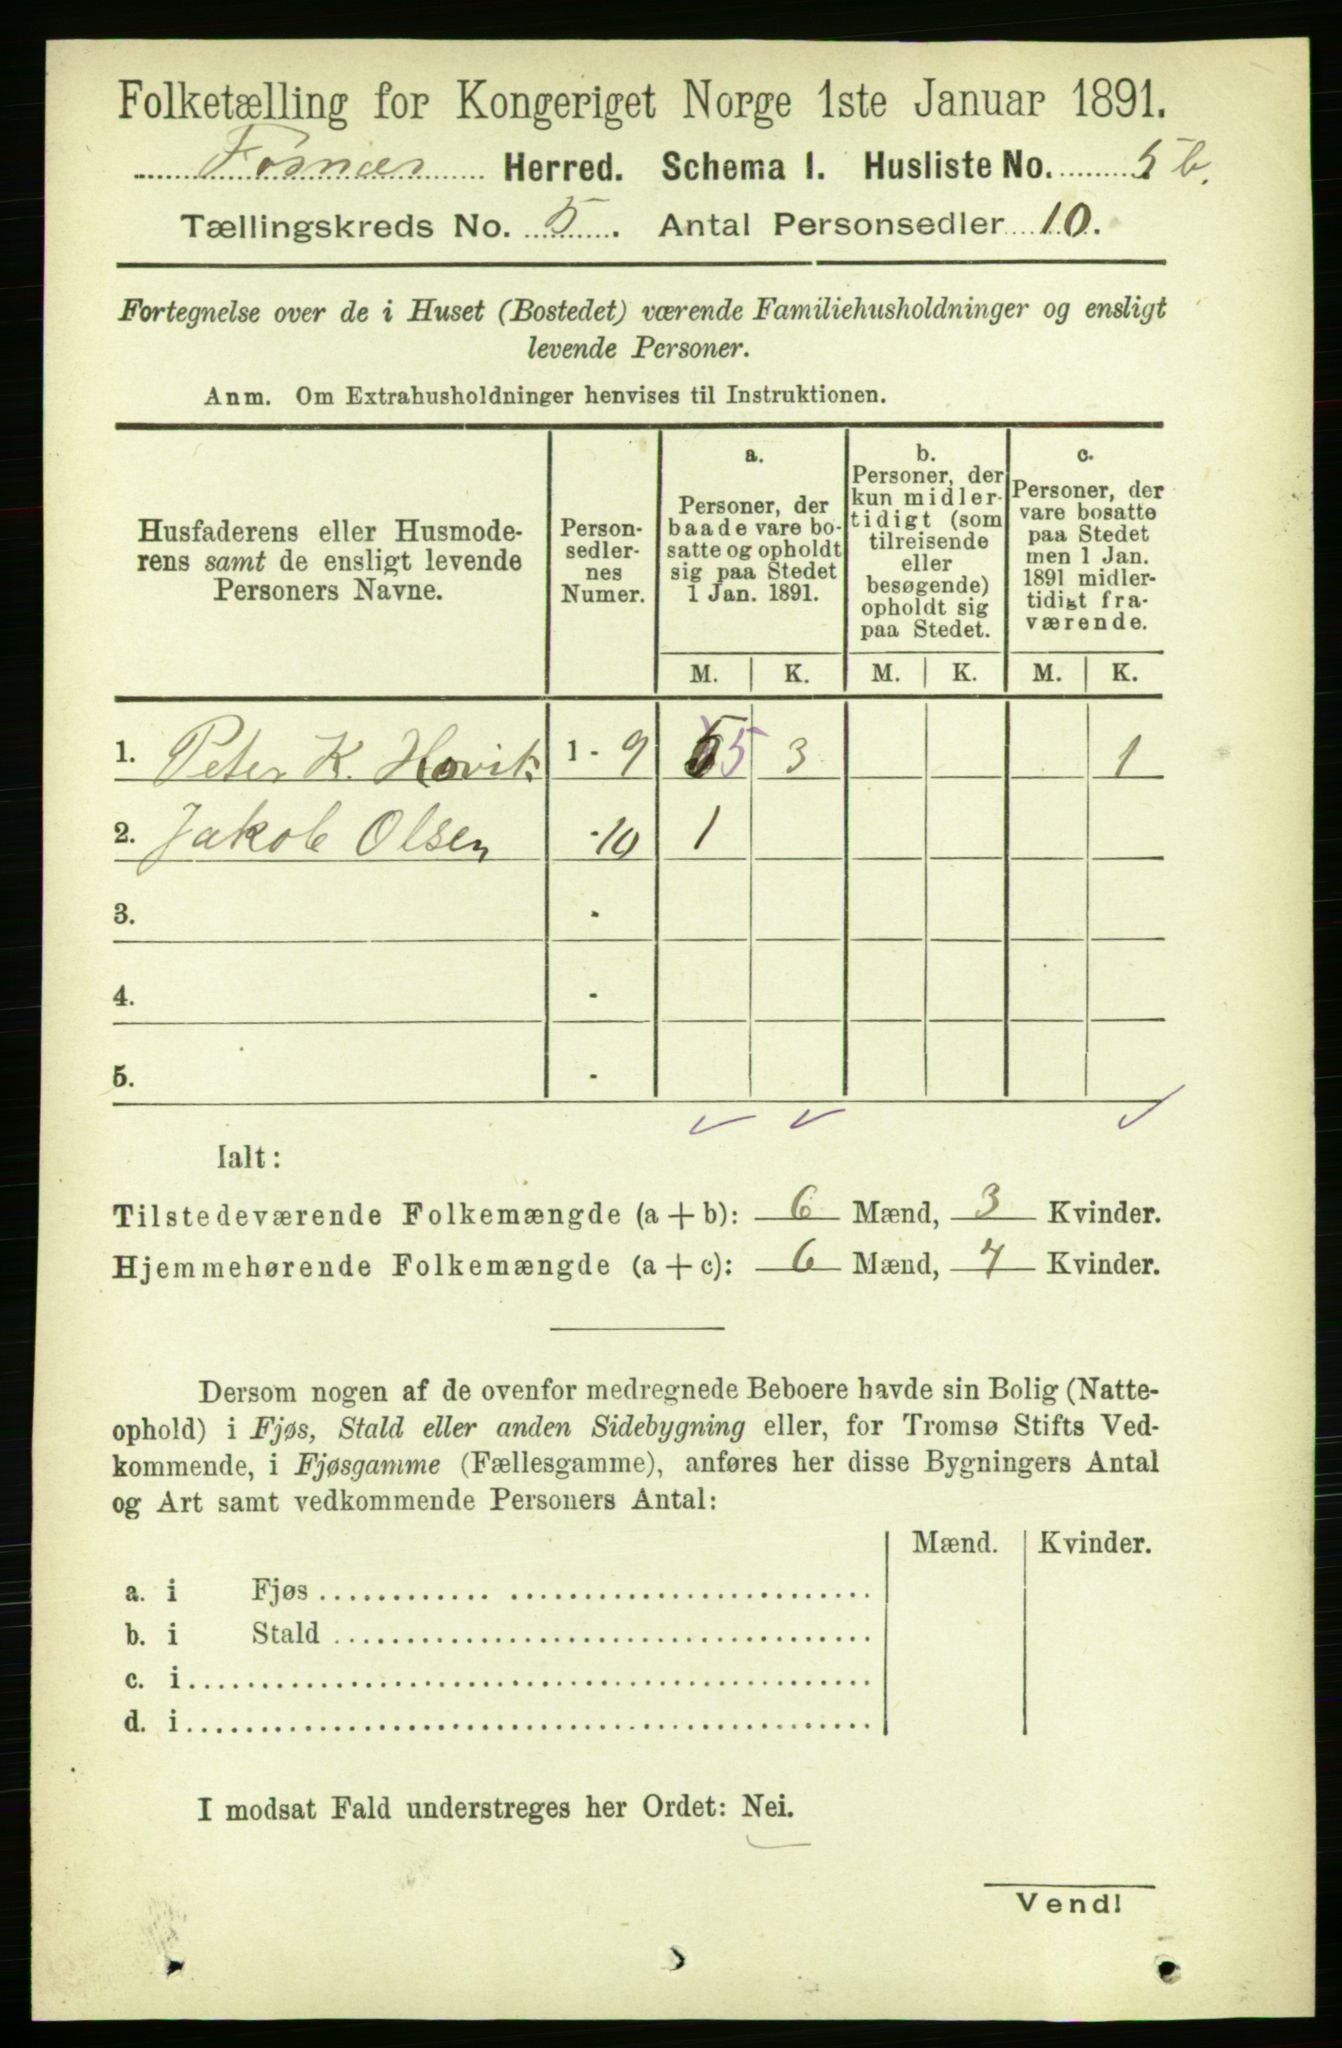 Folketælling for Kongeriget Norge 1ste Januar 1891.
Fosnæs Herred. Schema 1. Husliste No. 5 b.
Tællingskreds No. 5. Antal Personsedler 10.
Fortegnelse over de i Huset (Bostedet) værende Familiehusholdninger og ensligt
levende Personer.
Anm. Om Extrahusholdninger henvises til Instruktionen.
Husfaderens eller Husmode-
rens samt de ensligt levende
Personers Navne.
Person-
sedler-
nes
Numer.
a.
Personer, der
baade vare bo-
satte og opholdt
sig paa Stedet
1 Jan. 1891.
b.
Personer, der
kun midler-
tidigt (som
tilreisende
eller
besøgende)
opholdt sig
paa Stedet.
c.
Personer, der
vare bosatte
paa Stedet
men 1 Jan.
1891 midler-
tidigt fra-
værende.
M. K. M. K. M. K.
1. Peter K. Hovik 1 - 9 5 5 3 1
2. Jakob Olsen - 10 1
3. -
4. -
5. -
Ialt:
Tilstedeværende Folkemængde (a + b): 6 Mænd, 3 Kvinder.
Hjemmehørende Folkemængde (a + c): 6 Mænd, 4 Kvinder.
Dersom nogen af de ovenfor medregnede Beboere havde sin Bolig (Natte-
ophold) i Fjøs, Stald eller anden Sidebygning eller, for Tromsø Stifts Ved-
kommende, i Fjøsgamme (Fællesgamme), anføres her disse Bygningers Antal
og Art samt vedkommende Personers Antal:
Mænd. Kvinder.
a. i Fjøs
b. i Stald
c. i
d. i
I modsat Fald understreges her Ordet: Nei.
Vend!